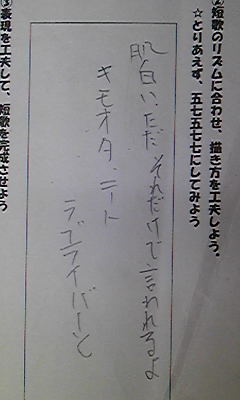 ②短歌のリズムに合わせ、描き方を工夫しよう。
☆とりあえず、五七五七七にしてみよう
肌白い、ただそれだけで言われるよ
キモオタ、ニート
ラブライバーと
③表現を工夫して、短歌を完成させよう